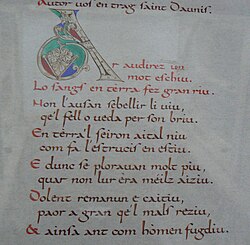 Autor vos en trag saint Daunis.
Ar audirez un
mot eschiu.
Lo sangs en terra fez gran riu.
Non l'ausan sebellir li viu,
qe'l fell o veda per son briu.
En terra'l feiron aital niu
com fa l'estrucis en estiu.
E dunc se ploravan molt piu,
quar non lur èra meilz aiziu.
Dolent remanun e caitiu,
paor a gran qe'l mals reziu,
& ainsa ant com homen fugdiu.